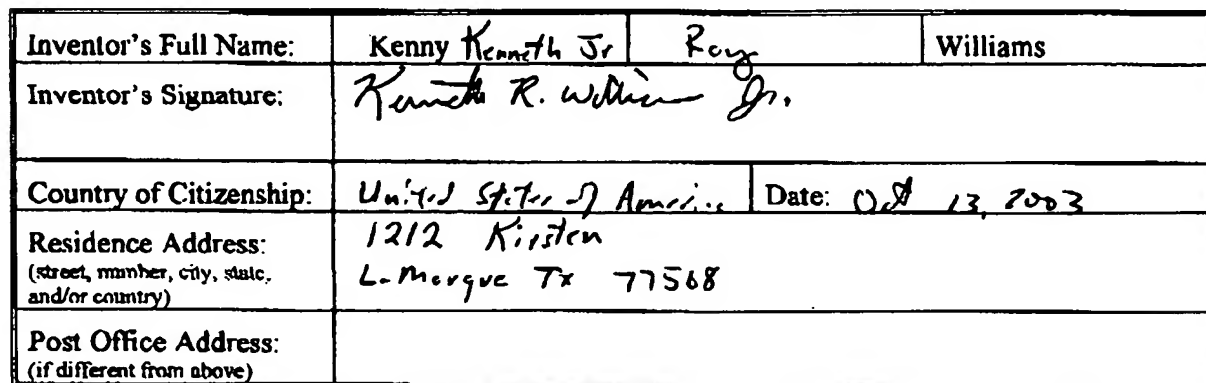 Inventor's Full Name: Kenny Kenneth Jr Roy Williams
Inventor's Signature: Kenneth R. Williams Jr.
Country of Citizenship: United States of America Date: Oct 13, 2003
Residence Address: 1212 Kirsten
(street, number, city, state, La Marque Tx 77568
and/or country)
Post Office Address:
(if different from above)